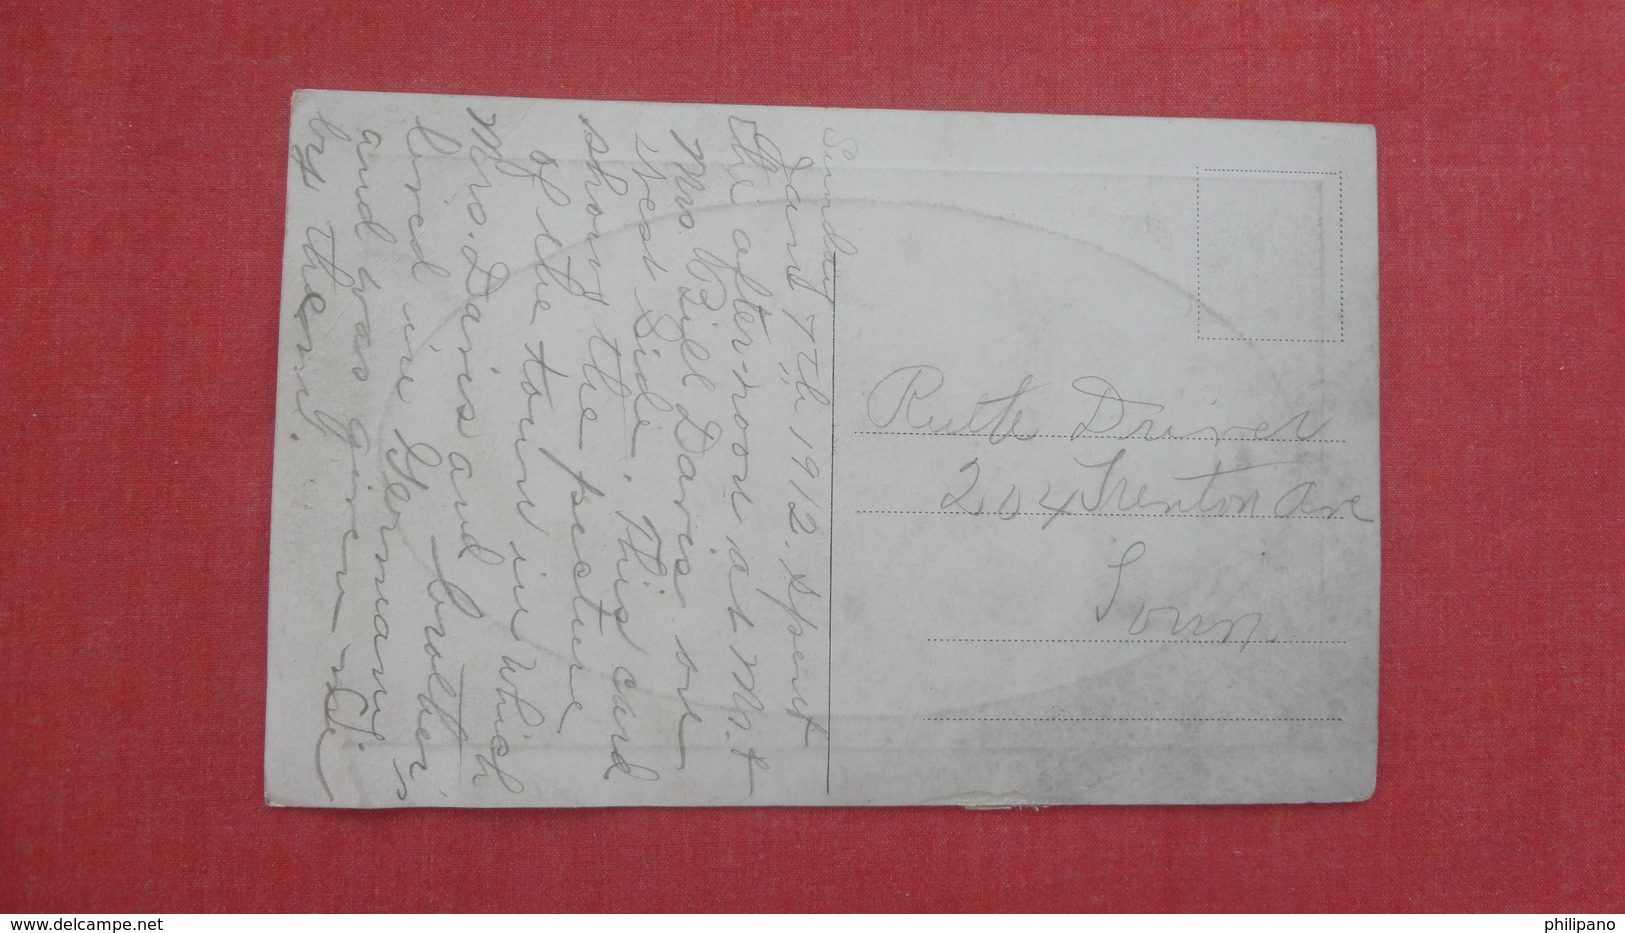 Sunday
Jan'y 7th 1912. Spent
the after-noon at Mr. &
Mrs. Bill Davis on
West Side. This card
shows the picture
of the town in which
Mrs. Davis and brother's
lived in Germany
and was given me
by them.
Ruth Driver
204 Trenton Ave
Town.
www.delcampe.net
philipano